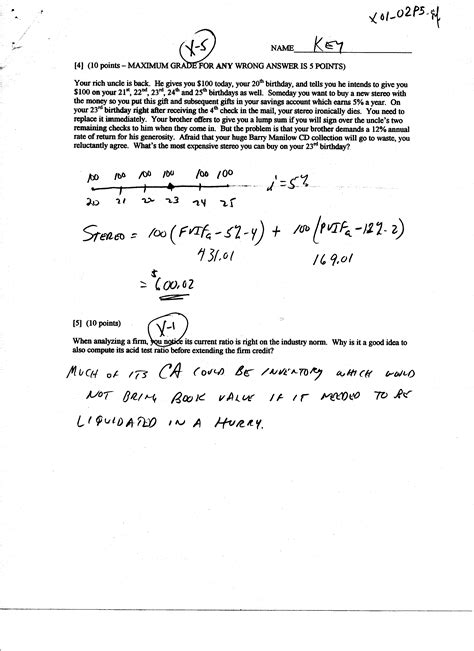 X01-02PS.4
X-5
NAME KEY
[4] (10 points – MAXIMUM GRADE FOR ANY WRONG ANSWER IS 5 POINTS)
Your rich uncle is back. He gives you $100 today, your 20th birthday, and tells you he intends to give you
$100 on your 21st, 22nd, 23rd, 24th and 25th birthdays as well. Someday you want to buy a new stereo with
the money so you put this gift and subsequent gifts in your savings account which earns 5% a year. On
your 23rd birthday right after receiving the 4th check in the mail, your stereo ironically dies. You need to
replace it immediately. Your brother offers to give you a lump sum if you will sign over the uncle's two
remaining checks to him when they come in. But the problem is that your brother demands a 12% annual
rate of return for his generosity. Afraid that your huge Barry Manilow CD collection will go to waste, you
reluctantly agree. What's the most expensive stereo you can buy on your 23rd birthday?
100 100 100 100 100 100
i=5%
20 21 22 23 24 25
STEREO = 100(FVIFa-5%-4) + 100(PVIFa-12%-2)
431.01 169.01
= $600.02
[5] (10 points)
X-1
When analyzing a firm, you notice its current ratio is right on the industry norm. Why is it a good idea to
also compute its acid test ratio before extending the firm credit?
MUCH OF ITS CA COULD BE INVENTORY WHICH WOULD
NOT BRING BOOK VALUE IF IT NEEDED TO BE
LIQUIDATED IN A HURRY.